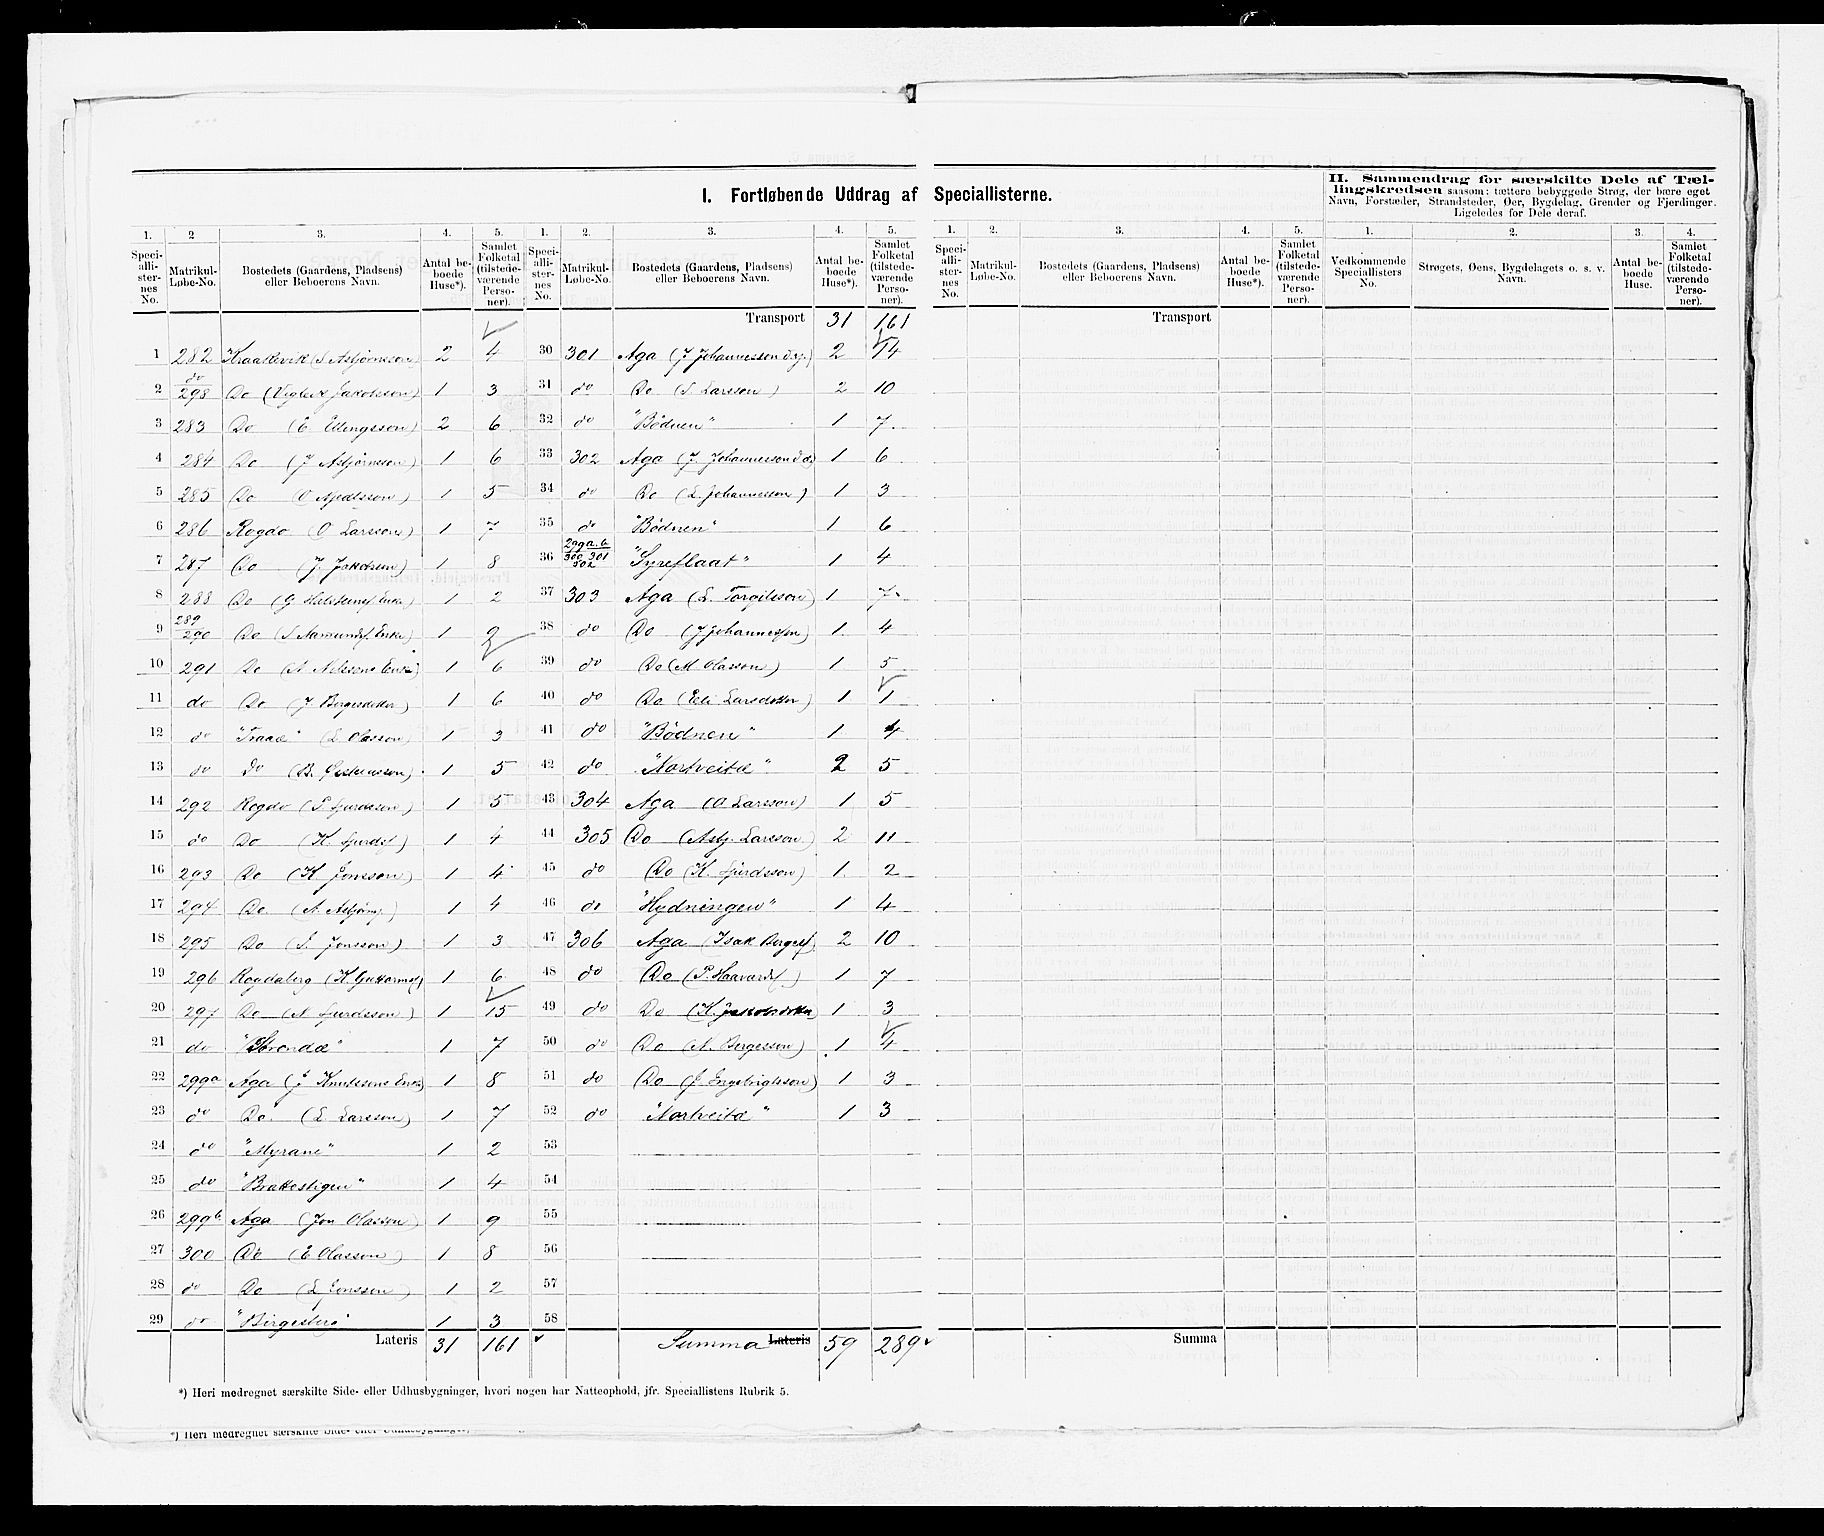 I. Fortløbende Uddrag af Speciallisterne.
II. Sammendrag for særskilte Dele af Tæl-
lingskredsen saasom: tættere bebyggede Strøg, der bære eget
Navn, Forstæder, Strandsteder, Øer, Bygdelag, Grender og Fjerdinger.
Ligeledes for Dele deraf.
1. 2 3. 4. 5. 1. 2. 3. 4. 5. 1. 2. 3. 4. 5. 1. 2. 3. 4.
Speciallisternes No. Matrikul-Løbe-No. Bostedets (Gaardens, Pladsens) eller Beboerens Navn. Antal beboede Huse*). Samlet Folketal (tilstedeværende Personer).
Speciallisternes No. Matrikul-Løbe-No. Bostedets (Gaardens, Pladsens) eller Beboerens Navn. Antal beboede Huse*). Samlet Folketal (tilstedeværende Personer).
Speciallisternes No. Matrikul-Løbe-No. Bostedets (Gaardens, Pladsens) eller Beboerens Navn. Antal beboede Huse*). Samlet Folketal (tilstedeværende Personer).
Vedkommende Speciallisters No. Strøgets, Øens, Bygdelagets o. s. v. Navn. Antal beboede Huse. Samlet Folketal (tilstedeværende Personer).
1 282 Kraakevik (S Asbjørnsson) 2 4
2 do/298 Do (Vigleik Jakobsson) 1 3
3 283 Do (E. Ellingsson) 2 6
4 284 Do (J Asbjørnsson) 1 6
5 285 Do (O 1 5
6 286 Rogdo (O Larsson) 1 7
7 287 Do (J. Jakobson) 1 8
8 288 Do (G Enke) 1 2
9 289/290 Do (S Aamundsf. Enke) 1 2
10 291 Do (A. Nilssons Enke) 1 6
11 do Do (J. Bergesdotter) 1 6
12 do "Traae" (L. Olasson) 1 3
13 do Do (B. 1 5
14 292 Rogdo (S. Sjurdsson) 1 5
15 do Do (K. Sjurdsf) 1 4
16 293 Do (K Jonsson) 1 4
17 294 Do. (A. Asbjørns.) 1 4
18 295 Do (S. Jonsson) 1 3
19 296 Rogdaberg (K Guttormsf) 1 6
20 297 Do (N Sjurdsson) 1 15
21 do "Strondæ" 1 7
22 299a Aga (J Knutssons Enke) 1 8
23 do Do (L Larsson) 1 7
24 do "Myrane" 1 2
25 do "Brattestigen" 1 4
26 299b Aga (Jon Olasson) 1 9
27 300 Do (E Olasson) 1 8
28 do Do (L Jonsson) 1 2
29 do "Birgesberg" 1 3
Lateris 31 161
Transport 31 161
30 301 Aga (J Johannesson d.y.) 2 14
31 do Do (S. Larsson) 2 10
32 do "Bødnen" 1 7
33 302 Aga (J. Johannesson d.æ) 1 6
34 do Do (L. Johannesson) 1 3
35 do "Bødnen" 1 6
36 299a.b 300 301 302 "Syreflaat" 1 4
37 303 Aga (L. Torgilsson) 1 7
38 do Do (J Johannesson) 1 4
39 do Do (M Olasson) 1 5
40 do Do (Eli Larsdotter) 1 1
41 do "Bødnen" 1 4
42 do "Nortveitæ" 2 5
43 304 Aga (O Larsson) 1 5
44 305 Do (Asbj. Larsson) 2 11
45 do Do (K. Sjurdsson) 1 2
46 do "Hydningen" 1 4
47 306 Aga (Isak Bergesf) 2 10
48 do Do (P. Haavardsf.) 1 7
49 do Do (K. Jakobsdotter) 1 3
50 do Do (A. Bergesson) 1 4
51 do Do (J Engebrigtsson) 1 3
52 do "Nortveitæ" 1 3
53
54
55
56
57
58
Summa Lateris 59 289
Transport
Summa
*) Heri medregnet særskilte Side- eller Udhusbygninger, hvori nogen har Natteophold, jfr. Speciallistens Rubrik 5.
*) Heri medregnet særskilte Side- eller Udhusbygninger,